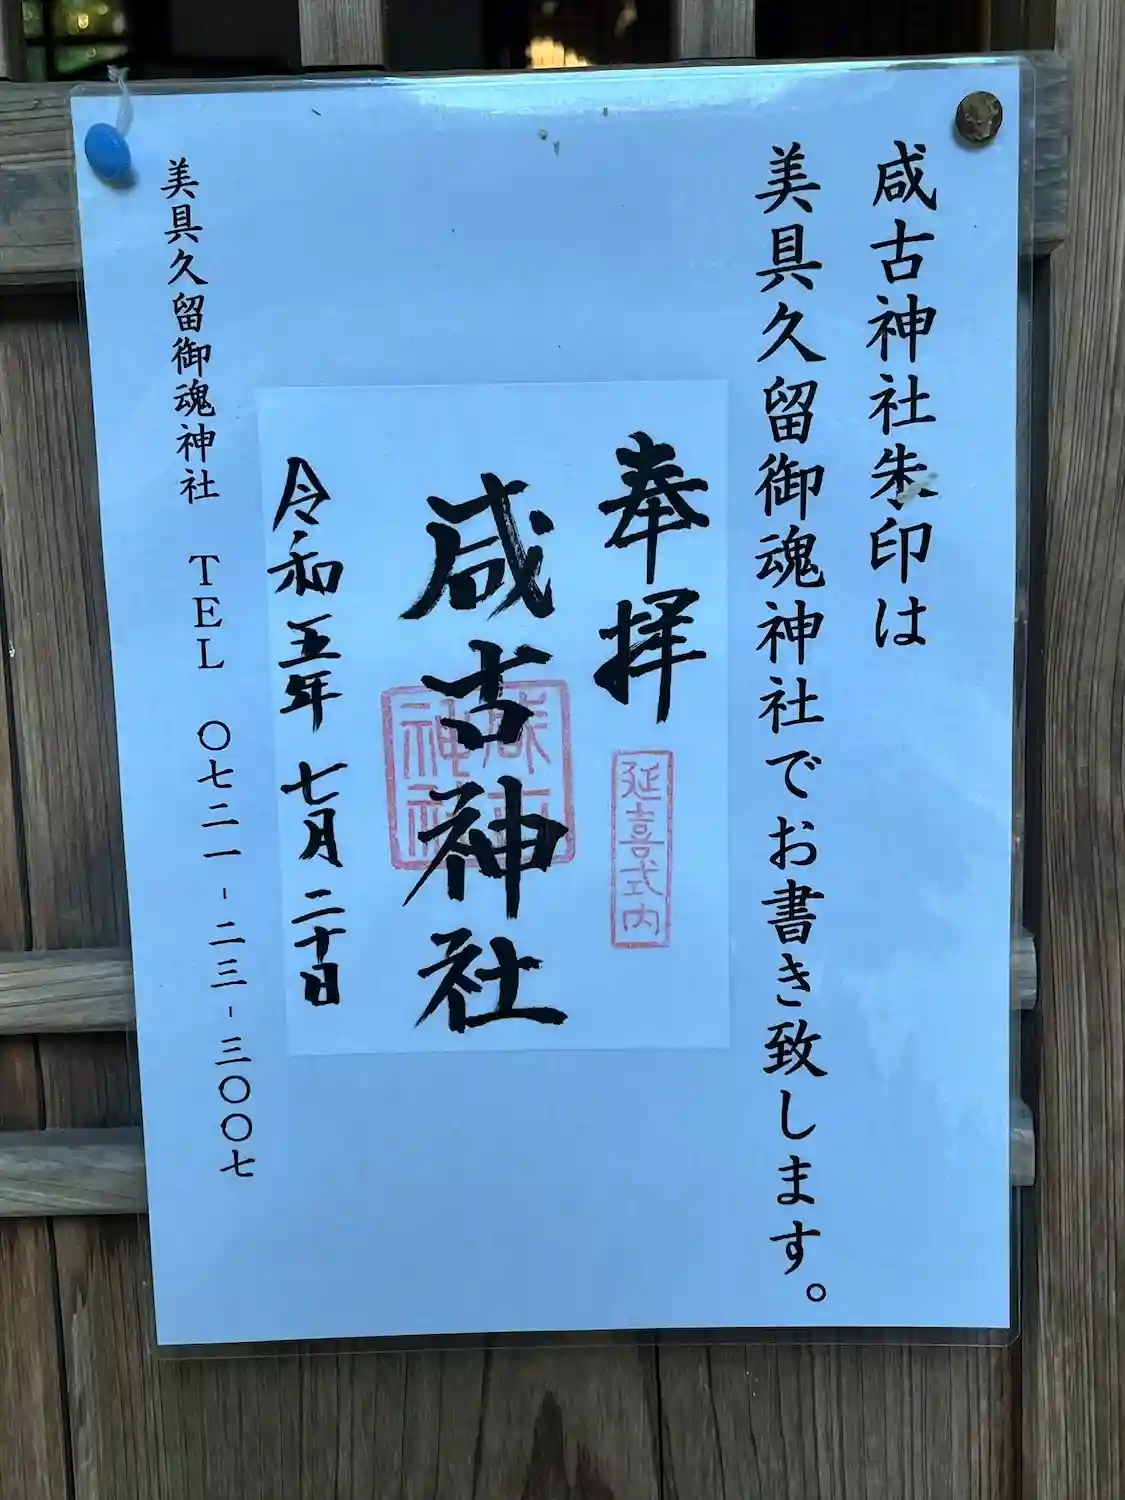 咸古神社朱印は
美具久留御魂神社でお書き致します。
奉拝
延喜式内
咸古神社
咸古
神社
令和五年七月二十日
美具久留御魂神社 TEL 〇七二一-二三-三〇〇七